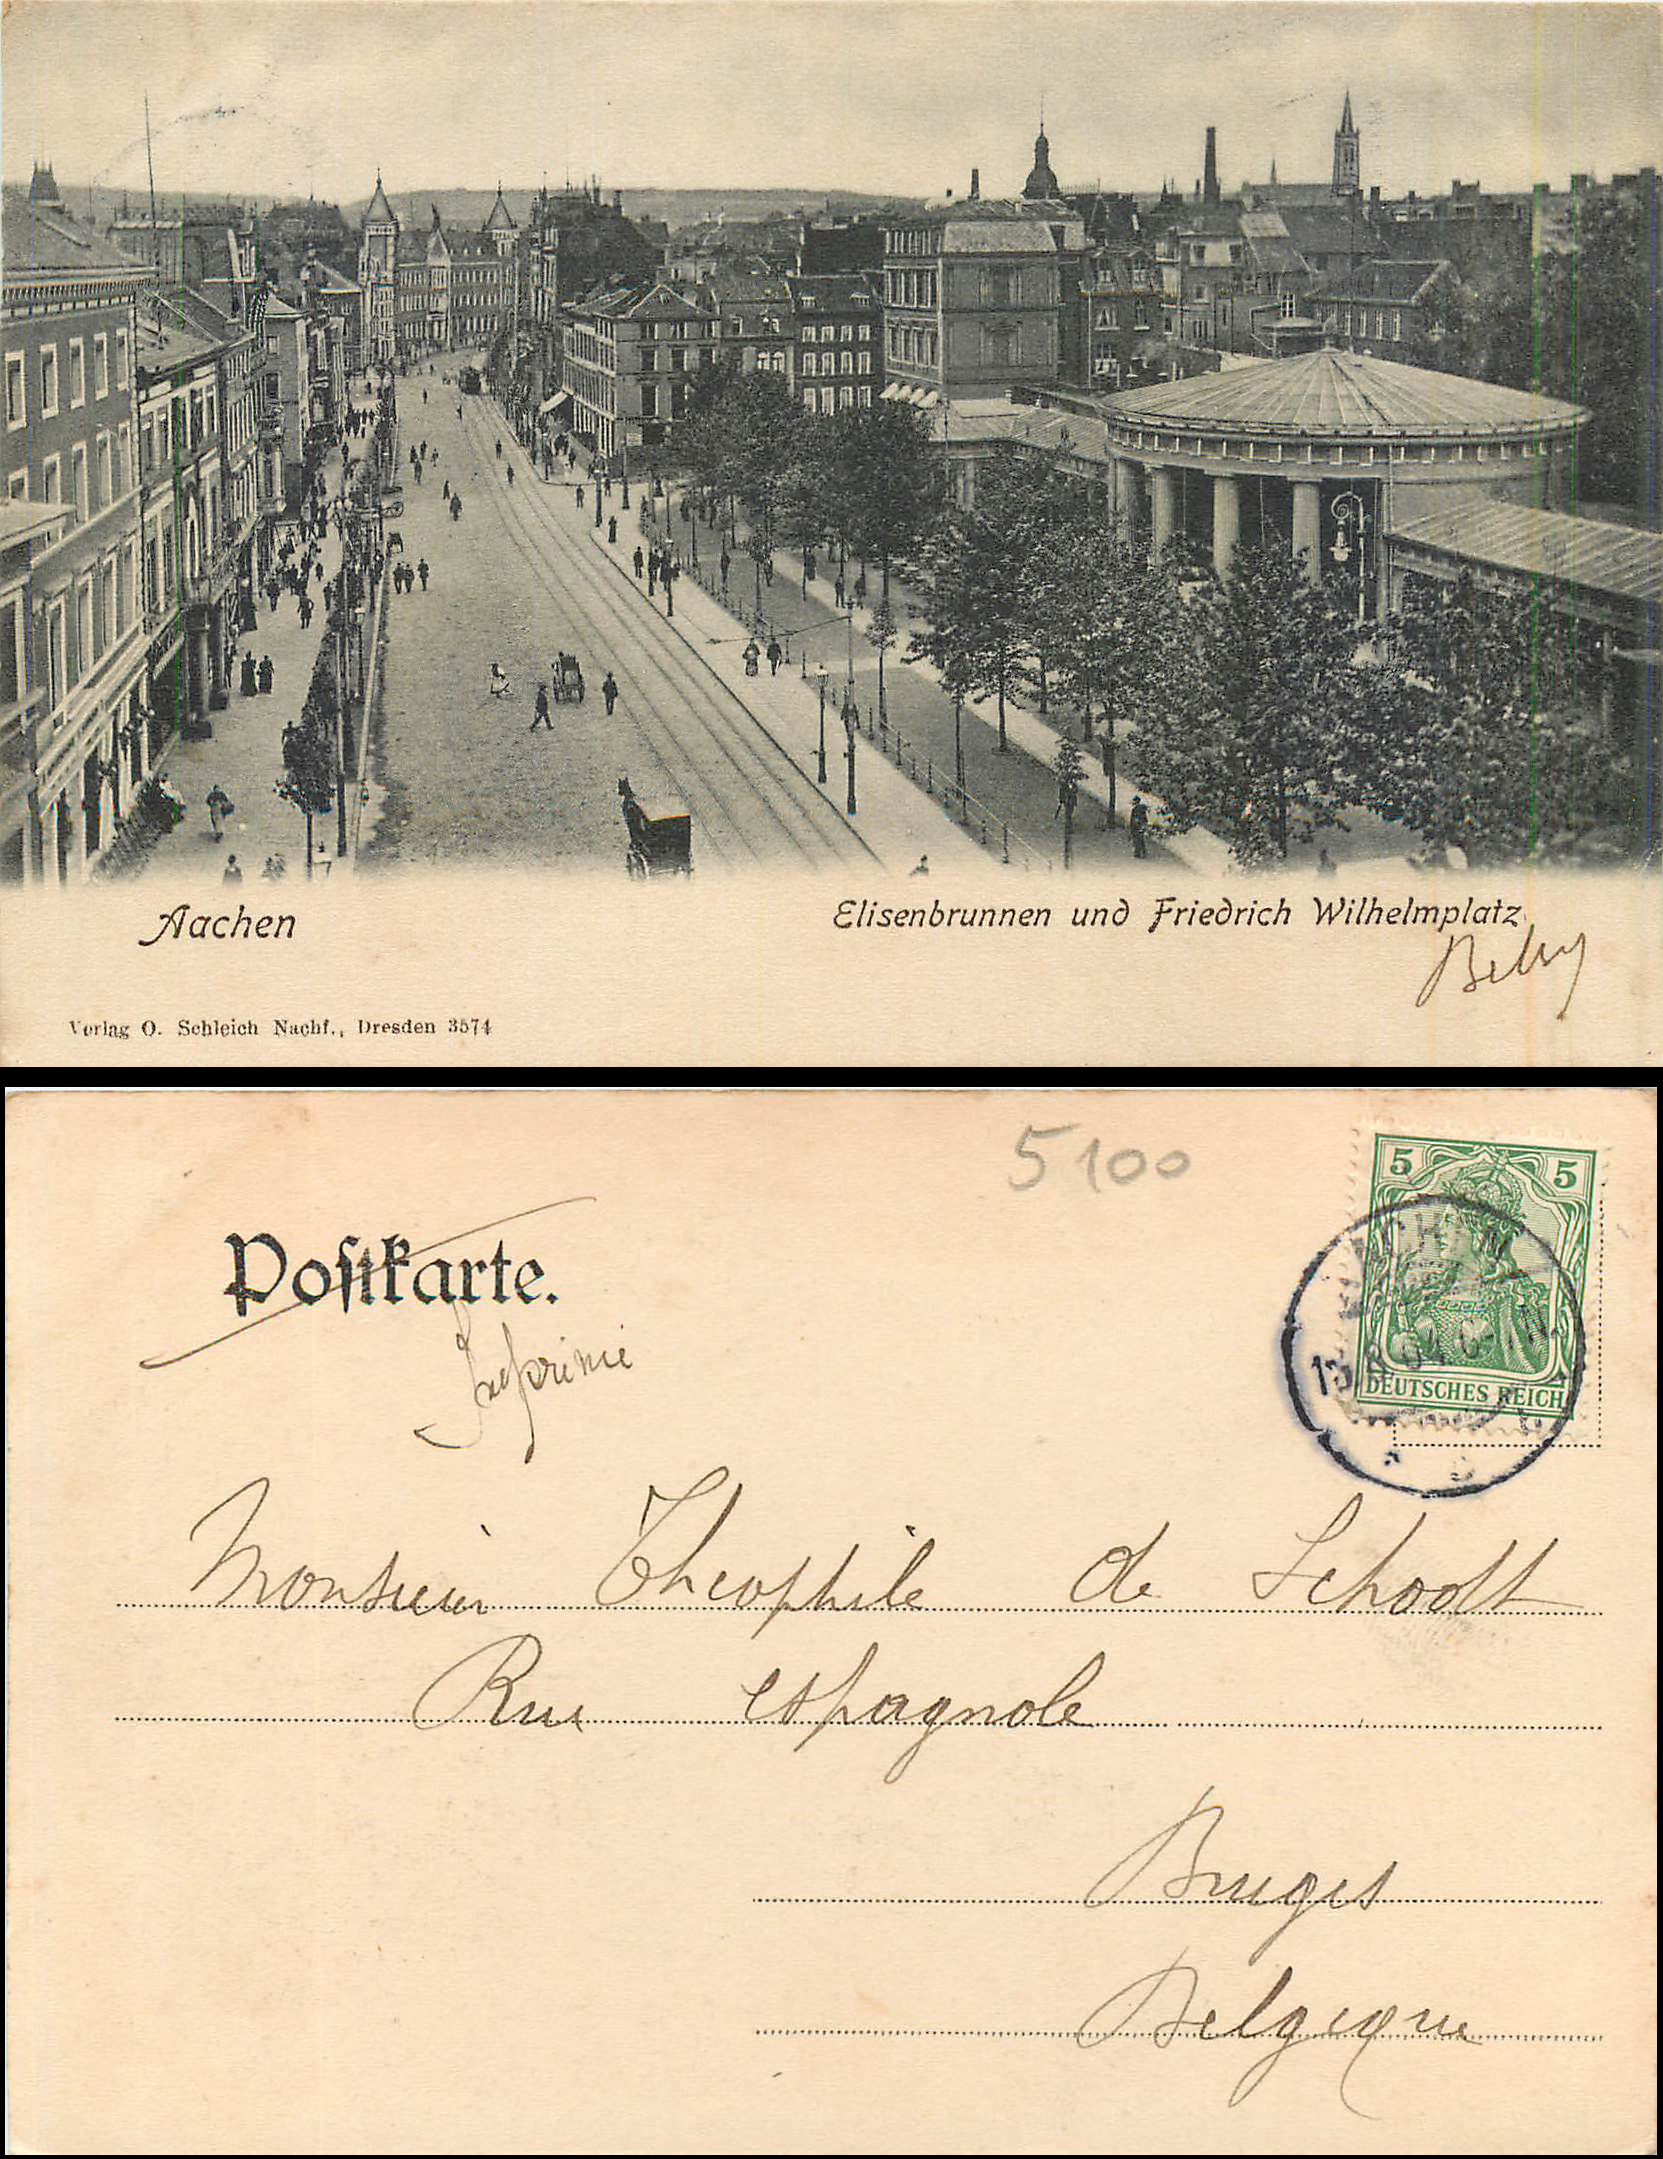 Aachen
Elisenbrunnen und Friedrich Wilhelmplatz
Verlag O. Schleich Nachf., Dresden 3574
5100
Postkarte.
Imprimé
5 5
DEUTSCHES REICH
AACHEN
Monsieur Théophile de Schoodt
Rue espagnole
Bruges
Belgique